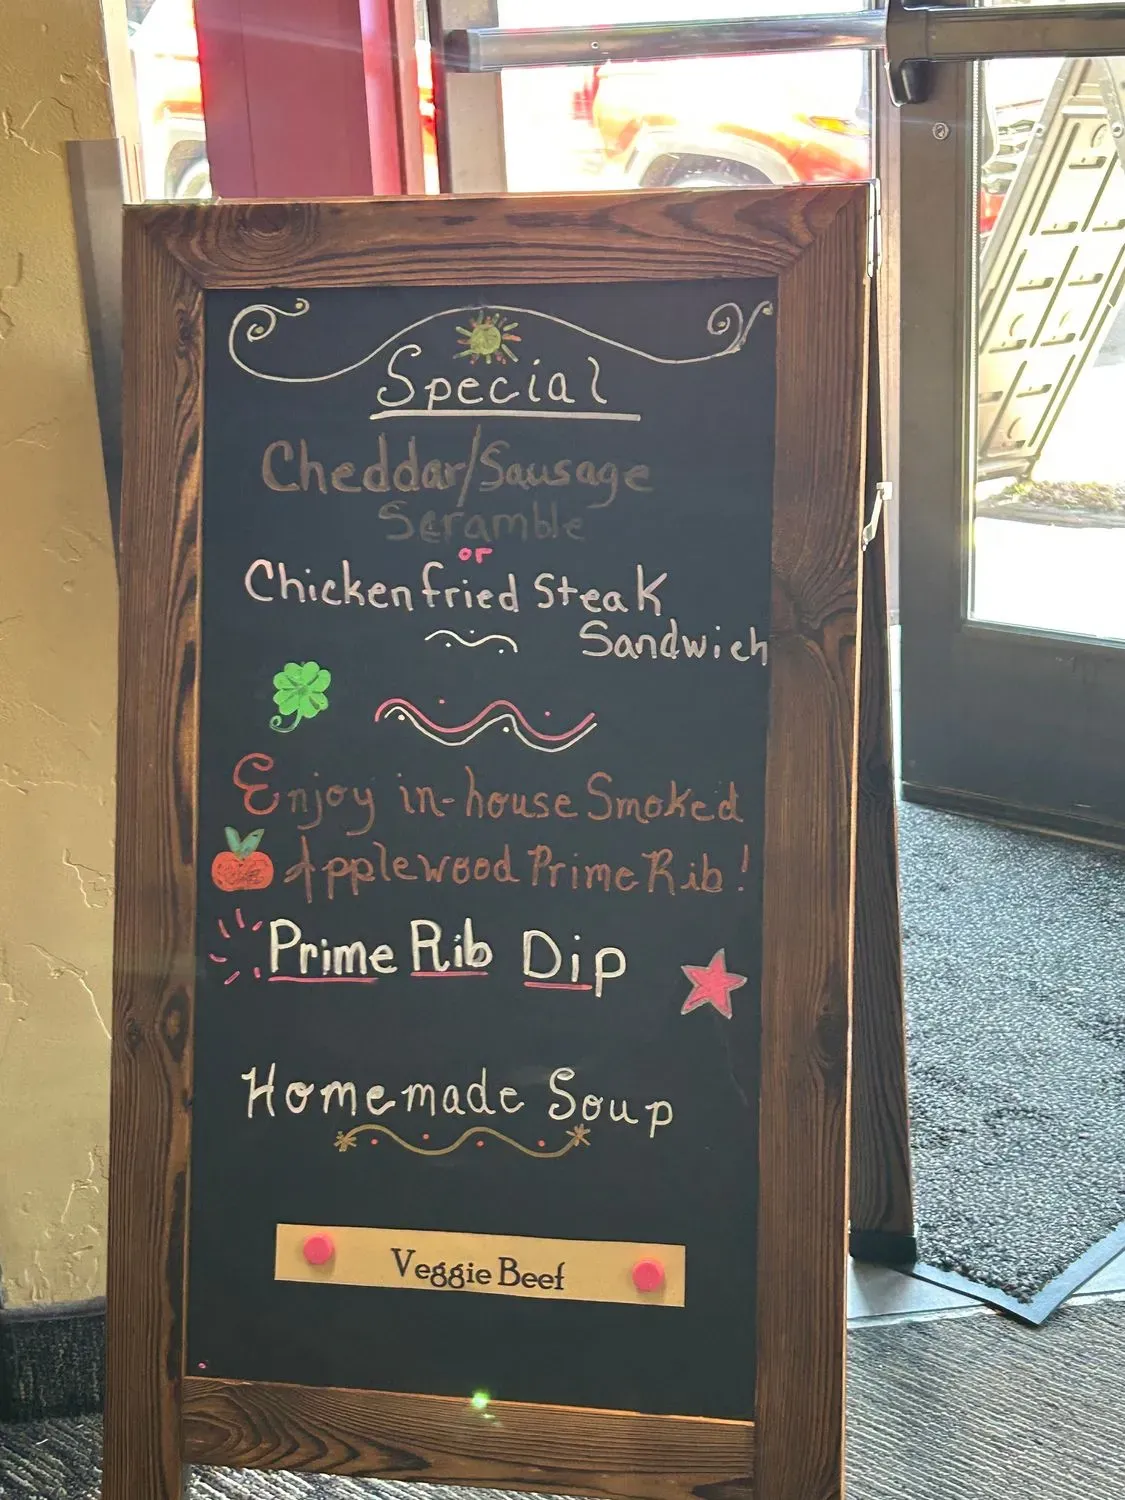 Special
Cheddar/Sausage
Scramble
or
Chicken fried Steak
Sandwich
Enjoy in-house Smoked
Applewood Prime Rib!
Prime Rib Dip
Homemade Soup
Veggie Beef